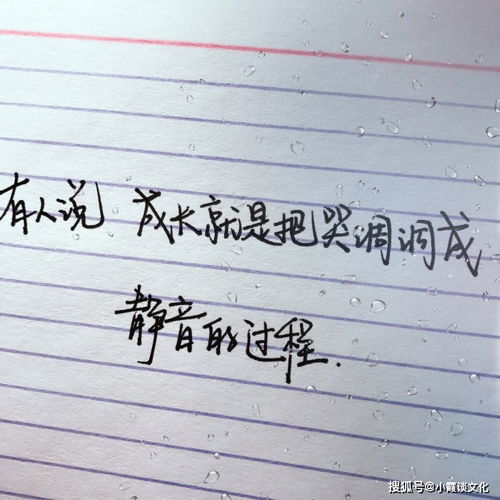 有人说 成长就是把哭调调成
静音的过程.
搜狐号@小霞谈文化